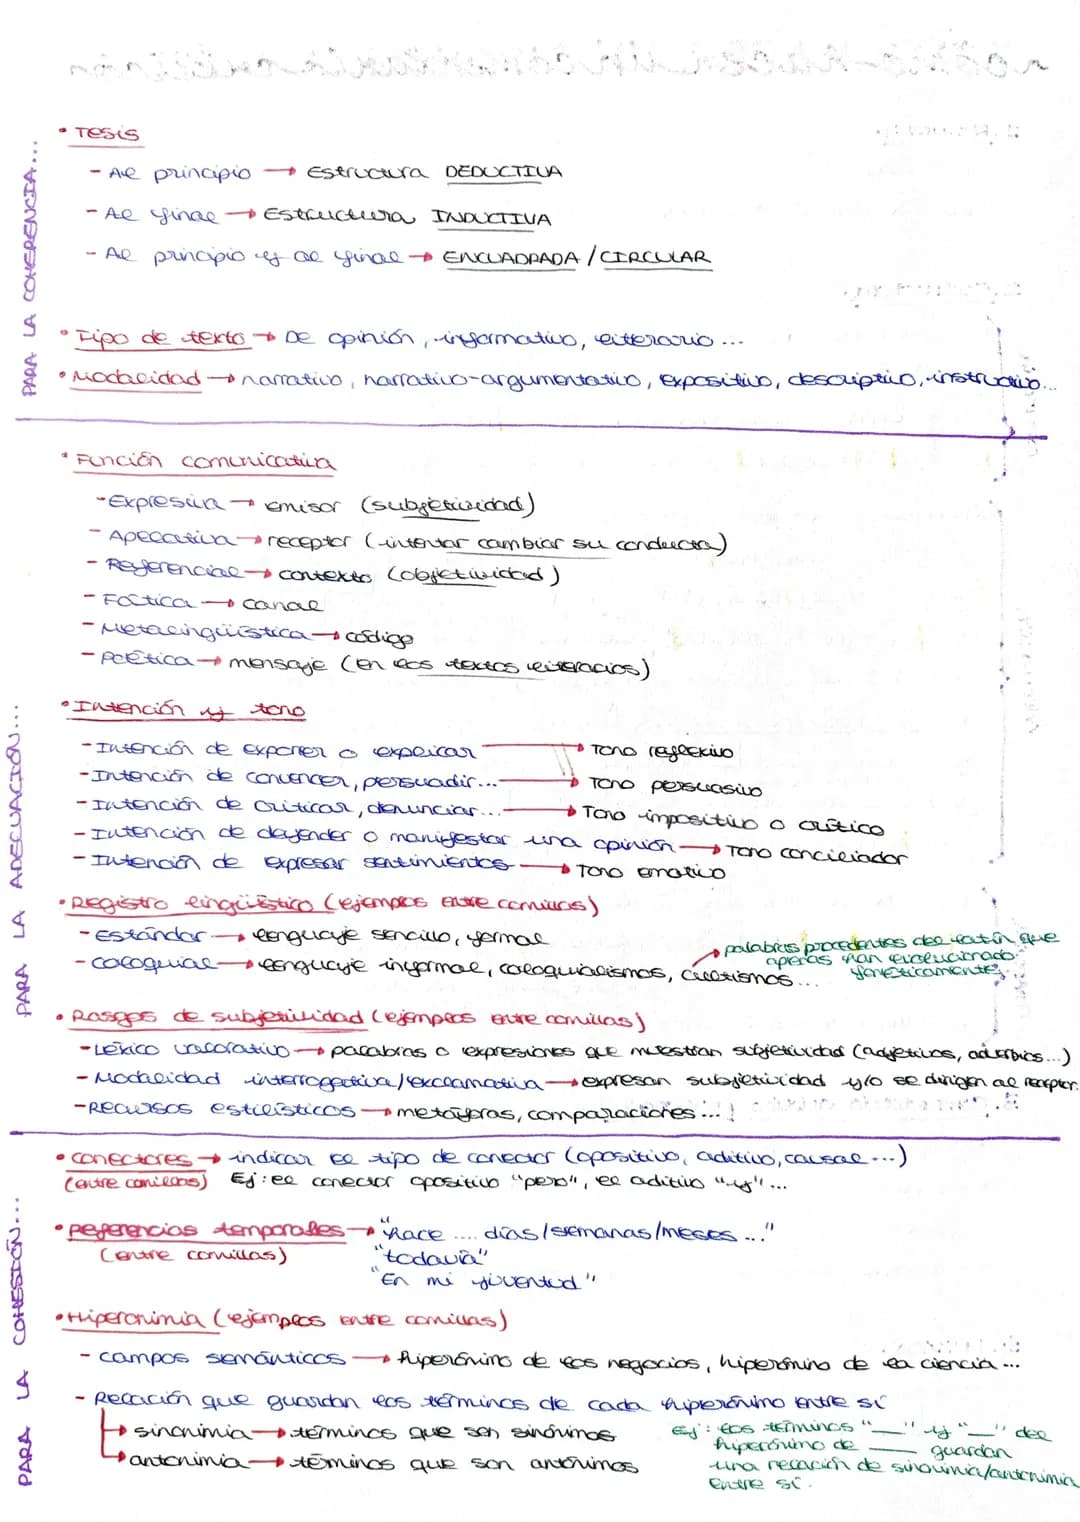 PARA LA COHERENCIA...
• Tesis
- Al principio → Estructura DEDUCTIVA
- Al final → Estructura INDUCTIVA
- Al principio y al final → ENCUADRADA / CIRCULAR
• Tipo de texto → De opinión, informativo, literario...
• Modalidad → narrativo, narrativo-argumentativo, expositivo, descriptivo, instructivo...
PARA LA ADECUACIÓN...
• Función comunicativa
- Expresiva → emisor (subjetividad)
- Apelativa → receptor (intentar cambiar su conducta)
- Referencial → contexto (objetividad)
- Fáctica → canal
- Metalingüística → código
- Poética → mensaje (En los textos literarios)
• Intención y tono
- Intención de exponer o explicar → Tono reflexivo
- Intención de convencer, persuadir... → Tono persuasivo
- Intención de criticar, denunciar... → Tono impositivo o crítico
- Intención de defender o manifestar una opinión → Tono conciliador
- Intención de expresar sentimientos → Tono emotivo
• Registro lingüístico (ejemplos entre comillas)
- Estándar → lenguaje sencillo, formal
- Coloquial → lenguaje informal, coloquialismos, cultismos...
→ palabras procedentes del latín que
apenas han evolucionado
fonéticamente.
• Rasgos de subjetividad (ejemplos entre comillas)
- Léxico valorativo → palabras o expresiones que muestran subjetividad (adjetivos, adverbios...)
- Modalidad interrogativa/exclamativa → expresan subjetividad y/o se dirigen al receptor.
- Recursos estilísticos → metáforas, comparaciones...
PARA LA COHESIÓN...
• Conectores → indicar el tipo de conector (opositivo, aditivo, causal...)
(entre comillas) Ej: el conector opositivo "pero", el aditivo "y"...
• Referencias temporales → "hace .... días/semanas/meses..."
(entre comillas) "todavía"
"En mi juventud"
• Hiperonimia (ejemplos entre comillas)
- Campos semánticos → hiperónimo de los negocios, hiperónimo de la ciencia...
- Relación que guardan los términos de cada hiperónimo entre sí
→ sinonimia → términos que son sinónimos
→ antonimia → términos que son antónimos
Ej: los términos "__" y "__" del
hiperónimo de ___ guardan
una relación de sinonimia/antonimia
entre sí.